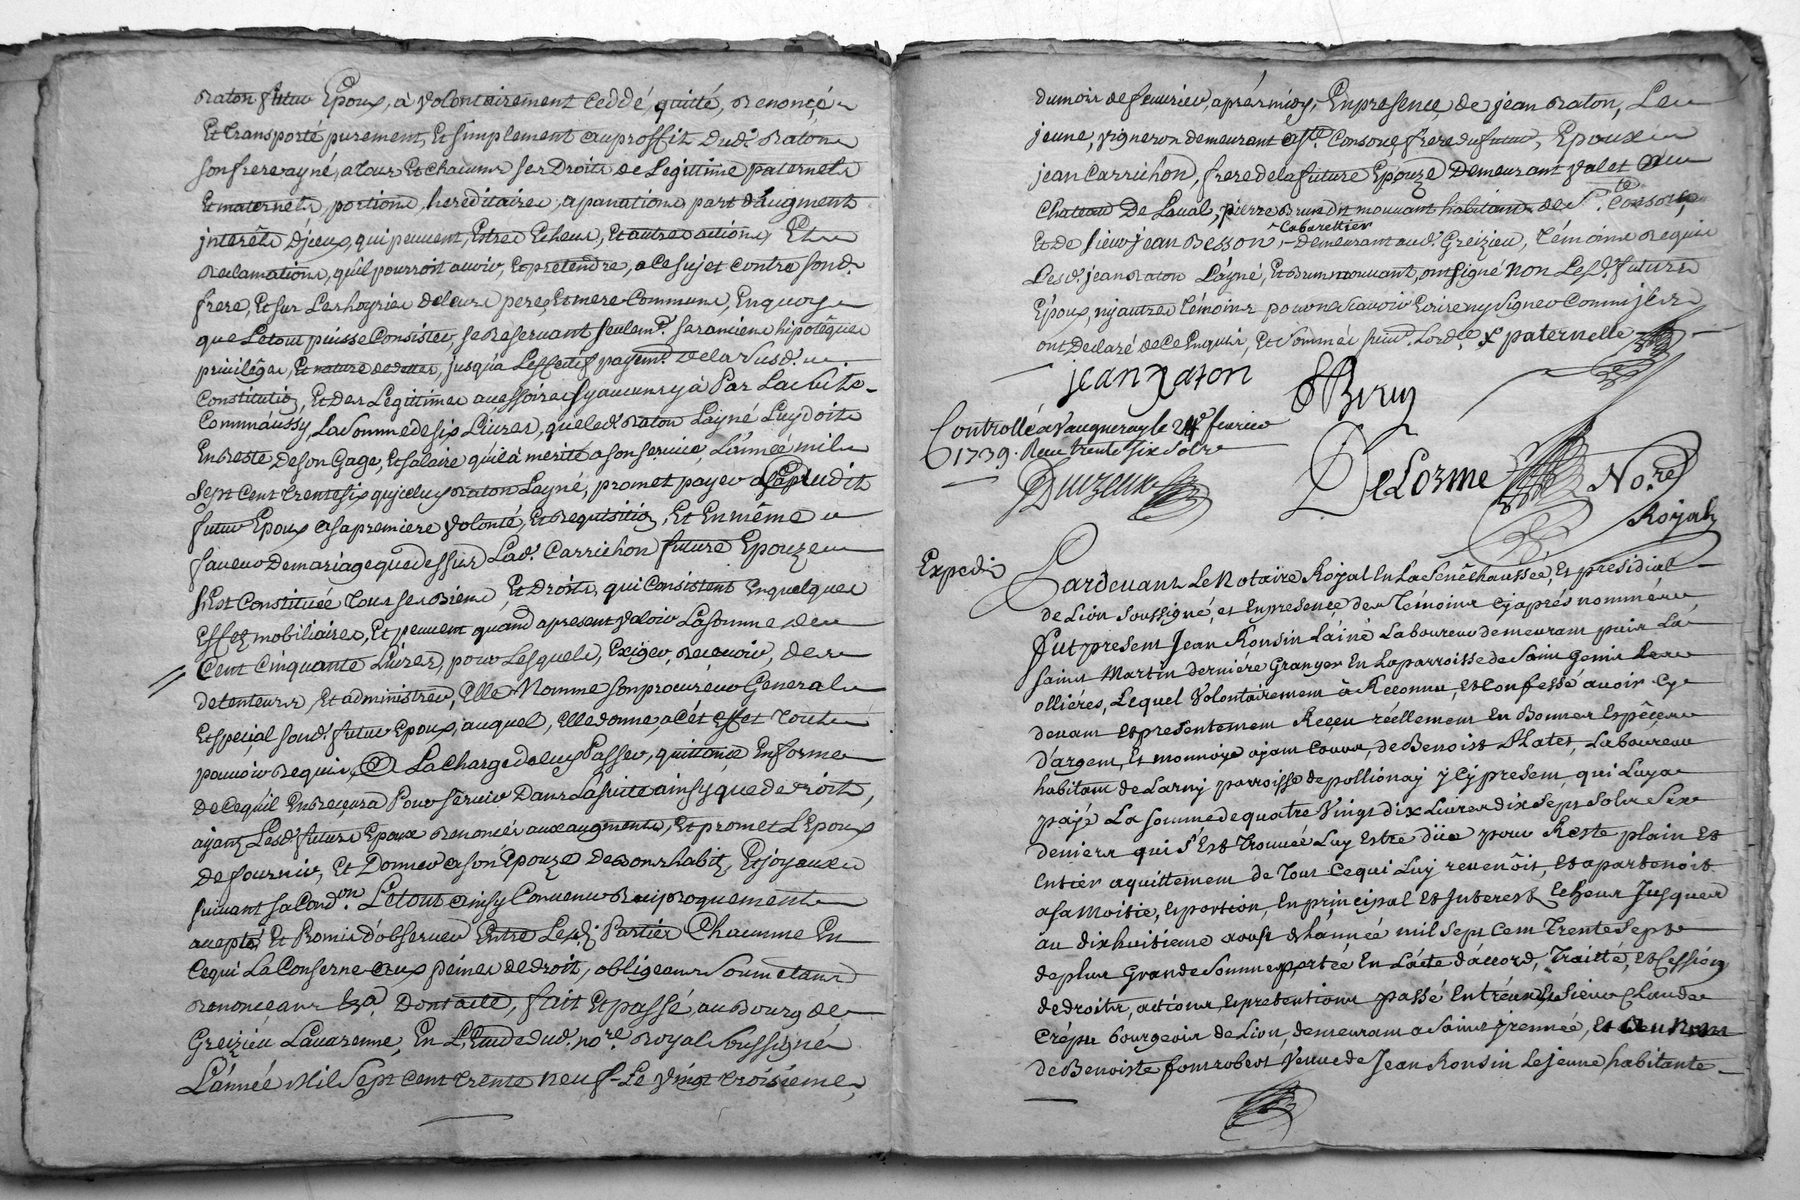 Raton futur Epoux, a volontairement ceddé, quitté, Renonçé
Et transporté purement, Et simplement au proffit dud. Raton
son frere ayné, a tous Et chacuns ses Droits de Legitime paternels
Et maternels, portions hereditaires, apanations part d'augment
interêts d'jceux, qui peuvent, Estre Echeus, Et autres actions, Et
Reclamations, qu'il pourroit avoir, Et pretendre, a ce sujet contre sond.
frere, Et sur Les hoyries de leurs pere, Et mere communs, En quoy
que Le tout puisse Consister, se Reservant seulemt. ses anciens hipotêques
privilêges, Et nature de dettes, jusqu'a L'effectif payemt. de la susd.
Constitution, Et des Legitimes acessoires sy aucuns y à Par La suite
Comm'aussy, La somme de six Livres, que led. Raton Layné Luy doit
En Reste De son Gage, Et salaire qu'il à merité a son service, L'année mil
sept cent trente six qu'jceluy Raton Layné, promet payer audit
futur Epoux a sa premiere volonté, Et Requisition, Et En même
faveur De mariage que dessus Lad. Carrichon future Epouze
s'Est Constituée Tous ses Biens, Et Droits, qui consistent En quelques
Effets mobiliaires, Et peuvent quand a present valoir La somme de
Cent Cinquante Livres, pour Lesquels, Exiger, Recevoir, de
detenteurs, Et administrer, Elle Nomme son procureur General
Et special sond. futur Epoux, auquel, Elle donne, a cét effet Tout
pouvoir Requis, La charge de luy Passer, quittance En forme
De ce qu'il En Recevra Pour servir Dans La suitte ainsy que de droit,
ayant Lesd. futurs Epoux Renoncés aux augments, Et promet L'Epoux
De fournir, Et Donner a son Epouze De bons habits, Et joyaux
suivant sa Condon. Le tout ainsy Convenu Reciproquement
accepté Et Promis d'observer Entre Lesd. Parties Chacune En
ce qui La Conserne aux peines de droit, obligeans soumetans
Renonceans &a. Dont acte, fait Et passé, au Bourg de
Greizieu Lavarenne, En L'Etude dud. nore. Royal soussigné
L'année Mil sept cent trente neuf Le vingt troisieme,
du mois de fevrier, aprés midy, En presence, de jean Raton, Le
jeune, vigneron demeurant a Ste. Consorce frere du futur, Epoux
jean Carrichon, frere de la future Epouze Demeurant valet au
Chateau De Laval, pierre Brun dit mouvant habitant de Ste. Consorce
Cabarettier
Et de sieur jean Besson, demeurant aud. Greizieu, Témoins Requis
Lesd. jean Raton L'ayné, Et Brun mouvant, ont signé non Lesd. futurs
Epoux, ny autres Témoins, pour ne sçavoir Ecrire ny signer comm'jls
ont Declaré de ce Enquis, Et sommés suivt. Lordce. x paternelle
jean Raton
Brun
Controllé a Vaugneray le 24e fevrier
1739. Reçu trente six sols
Delorme Nore.
Royal
Expedié
Pardevant Le Notaire Royal En La Senêchaussée, Et presidial
de Lion soussigné, et En presence des Témoins cy aprés nommés
fut present Jean Ronsin L'ainé Laboureur demeurant puis La
saint Martin derniére Granger En La parroisse de saint Genis Les
olliéres, Lequel volontairement à Reconnu, et confessé avoir cy
devant et presentement Reçeu réellement En Bonnes Espêces
d'argent, Et monnoye ayant cours, de Benoist Alates, Laboureur
habitant de Larny parroisse de pollionay jcy present, qui Luy a
payé La somme de quatre vingt dix Livres dix sept sols six
deniers qui s'Est Trouvée Luy Estre düe pour Reste plain Et
Entier aquittement de Tout ce qui Luy revenôit, et apartenoit
a sa moitie, et portion, En principal et Interest Echeus Jusques
au dixhuitieme aoust de Lannée mil sept cent Trente sept
de plus Grande somme portée En L'acte d'accord, Traitté, et Cession
de droits, actions, et pretentions passé Entréux, Le sieur Claude
Crépu bourgeois de Lion, demeurant a Saint jrennée, et au nom
de Benoiste fontrobert veuve de Jean Ronsin Le jeune habitante